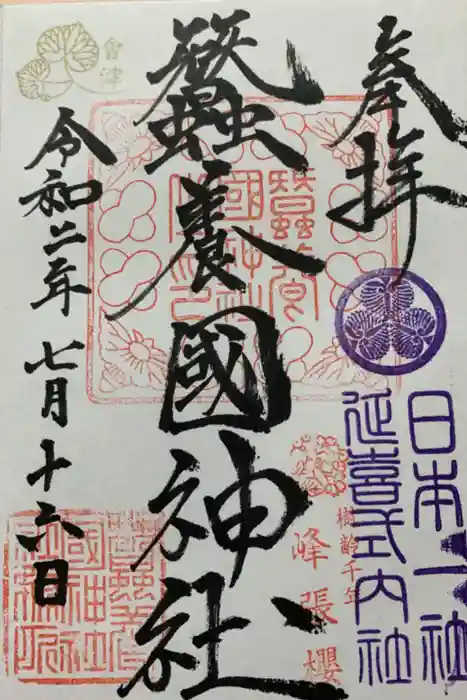 奉拝
日本一社
延喜式内社
樹齢千年
峰張櫻
蠶養國神社
會津
令和二年七月十六日